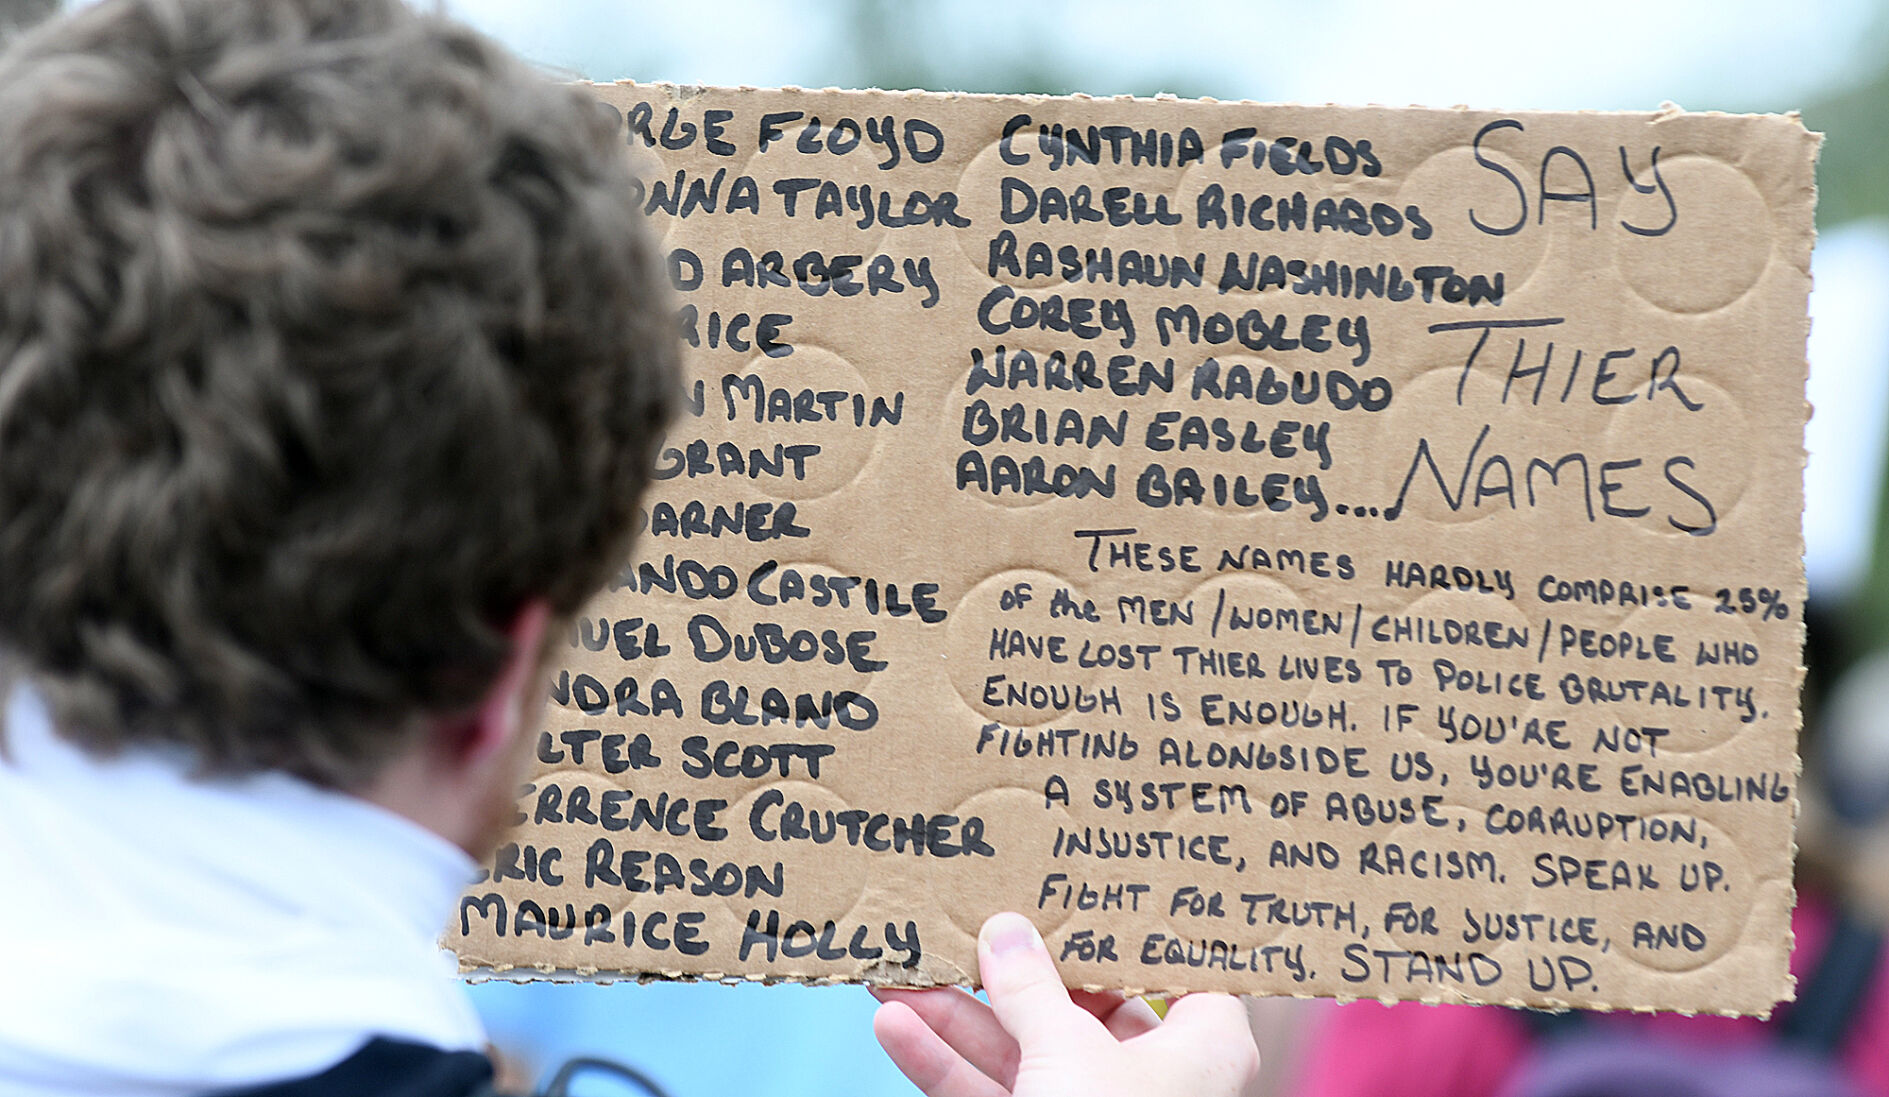 RGE FLOYD
NNA TAYLOR
D ARBERY
RICE
N MARTIN
GRANT
ARNER
ANDO CASTILE
UEL DUBOSE
NDRA BLAND
LTER SCOTT
ERRENCE CRUTCHER
RIC REASON
MAURICE HOLLY
CYNTHIA FIELDS
DARELL RICHARDS
RASHAUN WASHINGTON
COREY MOBLEY
WARREN RAGUDO
BRIAN EASLEY
AARON BAILEY...
SAY
THIER
NAMES
THESE NAMES HARDLY COMPRISE 25%
OF the MEN/WOMEN/CHILDREN/PEOPLE WHO
HAVE LOST THIER LIVES TO POLICE BRUTALITY.
ENOUGH IS ENOUGH. IF YOU'RE NOT
FIGHTING ALONGSIDE US, YOU'RE ENABLING
A SYSTEM OF ABUSE, CORRUPTION,
INJUSTICE, AND RACISM. SPEAK UP.
FIGHT FOR TRUTH, FOR JUSTICE, AND
FOR EQUALITY. STAND UP.